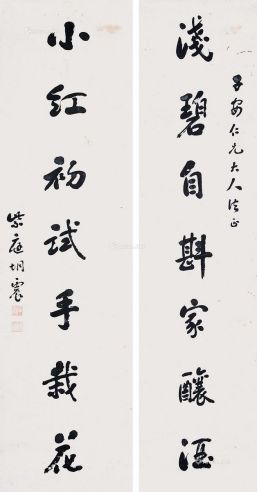 淺碧自斟家釀酒
子安仁兄大人法正
小紅初試手栽花
紫庭炯震